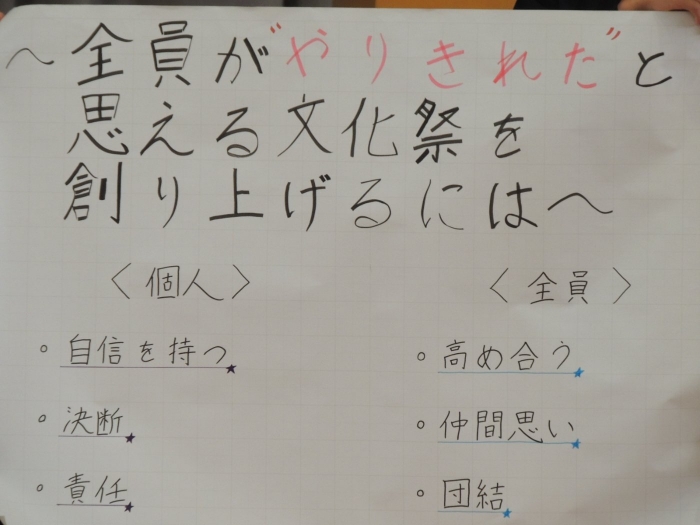 ～全員が"やりきれた"と
思える文化祭を
創り上げるには～
〈個人〉
〈全員〉
。自信を持つ★
。高め合う★
。決断★
。仲間思い★
。責任★
。団結★